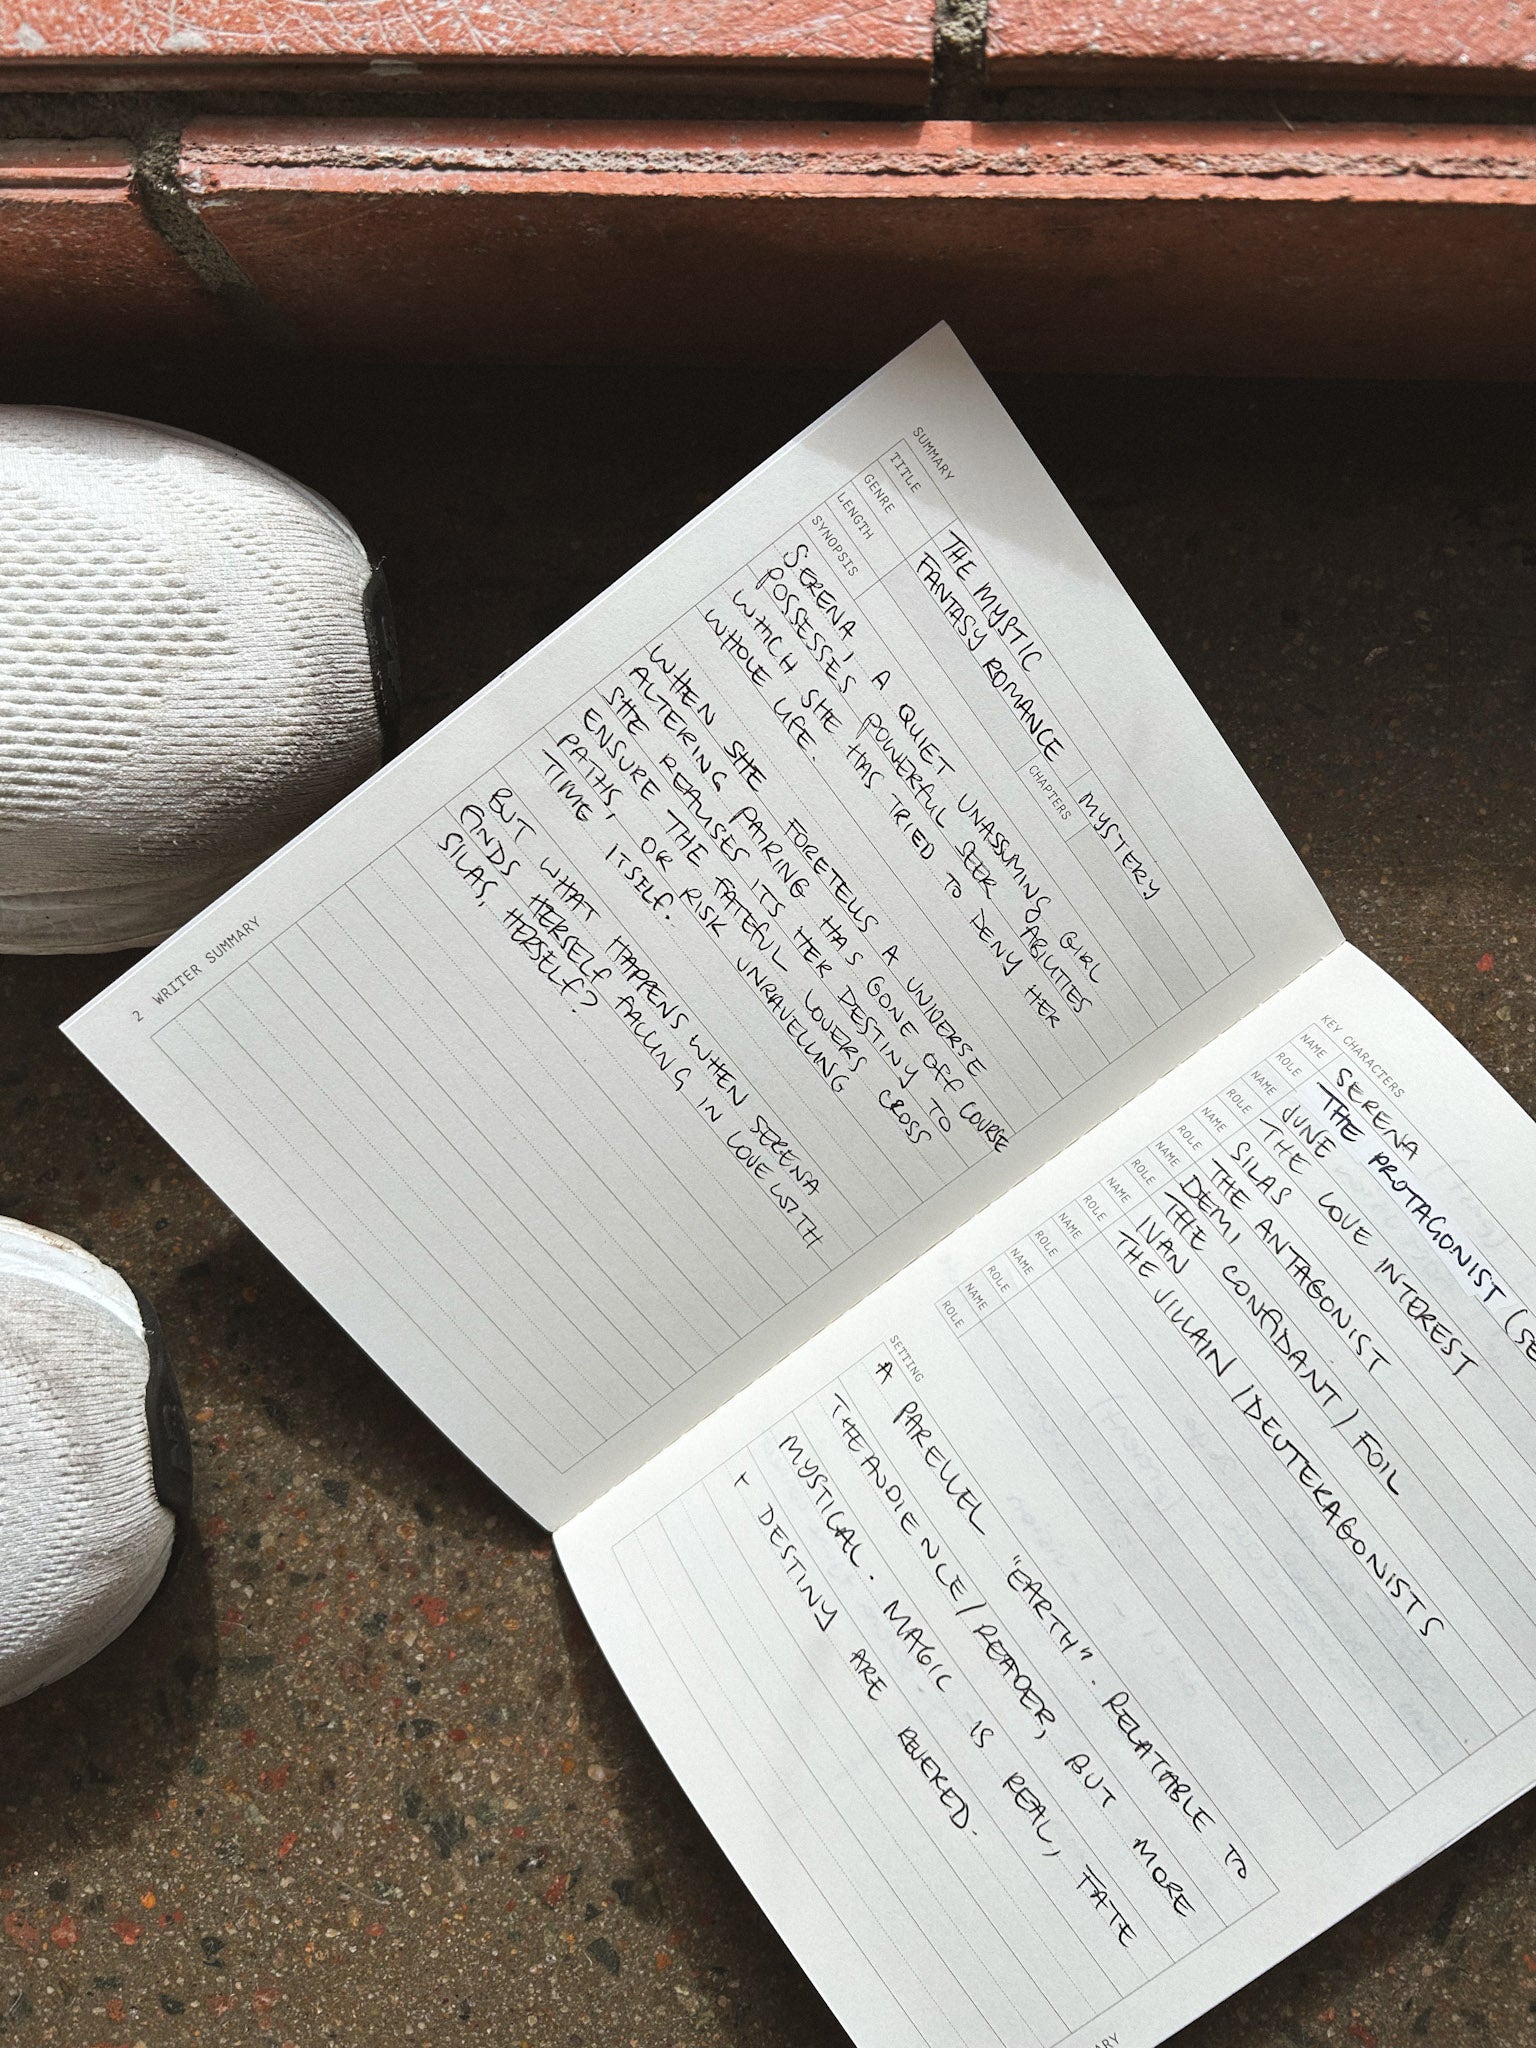 SUMMARY
TITLE THE MYSTIC
GENRE FANTASY ROMANCE MYSTERY
LENGTH CHAPTERS
SYNOPSIS
SERENA, A QUIET UNASSUMING GIRL
POSSESSES POWERFUL SEER ABILITIES
WHICH SHE HAS TRIED TO DENY HER
WHOLE LIFE.
WHEN SHE FORETELLS A UNIVERSE
ALTERING PAIRING HAS GONE OFF COURSE
SHE REALISES ITS HER DESTINY TO
ENSURE THE FATEFUL LOVERS CROSS
PATHS, OR RISK UNRAVELLING
TIME ITSELF.
BUT WHAT HAPPENS WHEN SERENA
FINDS HERSELF FALLING IN LOVE WITH
SILAS, HERSELF?
2 WRITER SUMMARY
KEY CHARACTERS
NAME SERENA
ROLE THE PROTAGONIST (SE
NAME JUNE
ROLE THE LOVE INTEREST
NAME SILAS
ROLE THE ANTAGONIST
NAME DEMI
ROLE THE CONFIDANT / FOIL
NAME IVAN
ROLE THE VILLAIN / DEUTERAGONISTS
NAME
ROLE
NAME
ROLE
NAME
ROLE
SETTING
A PARELLEL "EARTH". RELATABLE TO
THE AUDIENCE/READER, BUT MORE
MYSTICAL. MAGIC IS REAL, FATE
+ DESTINY ARE REVERED.